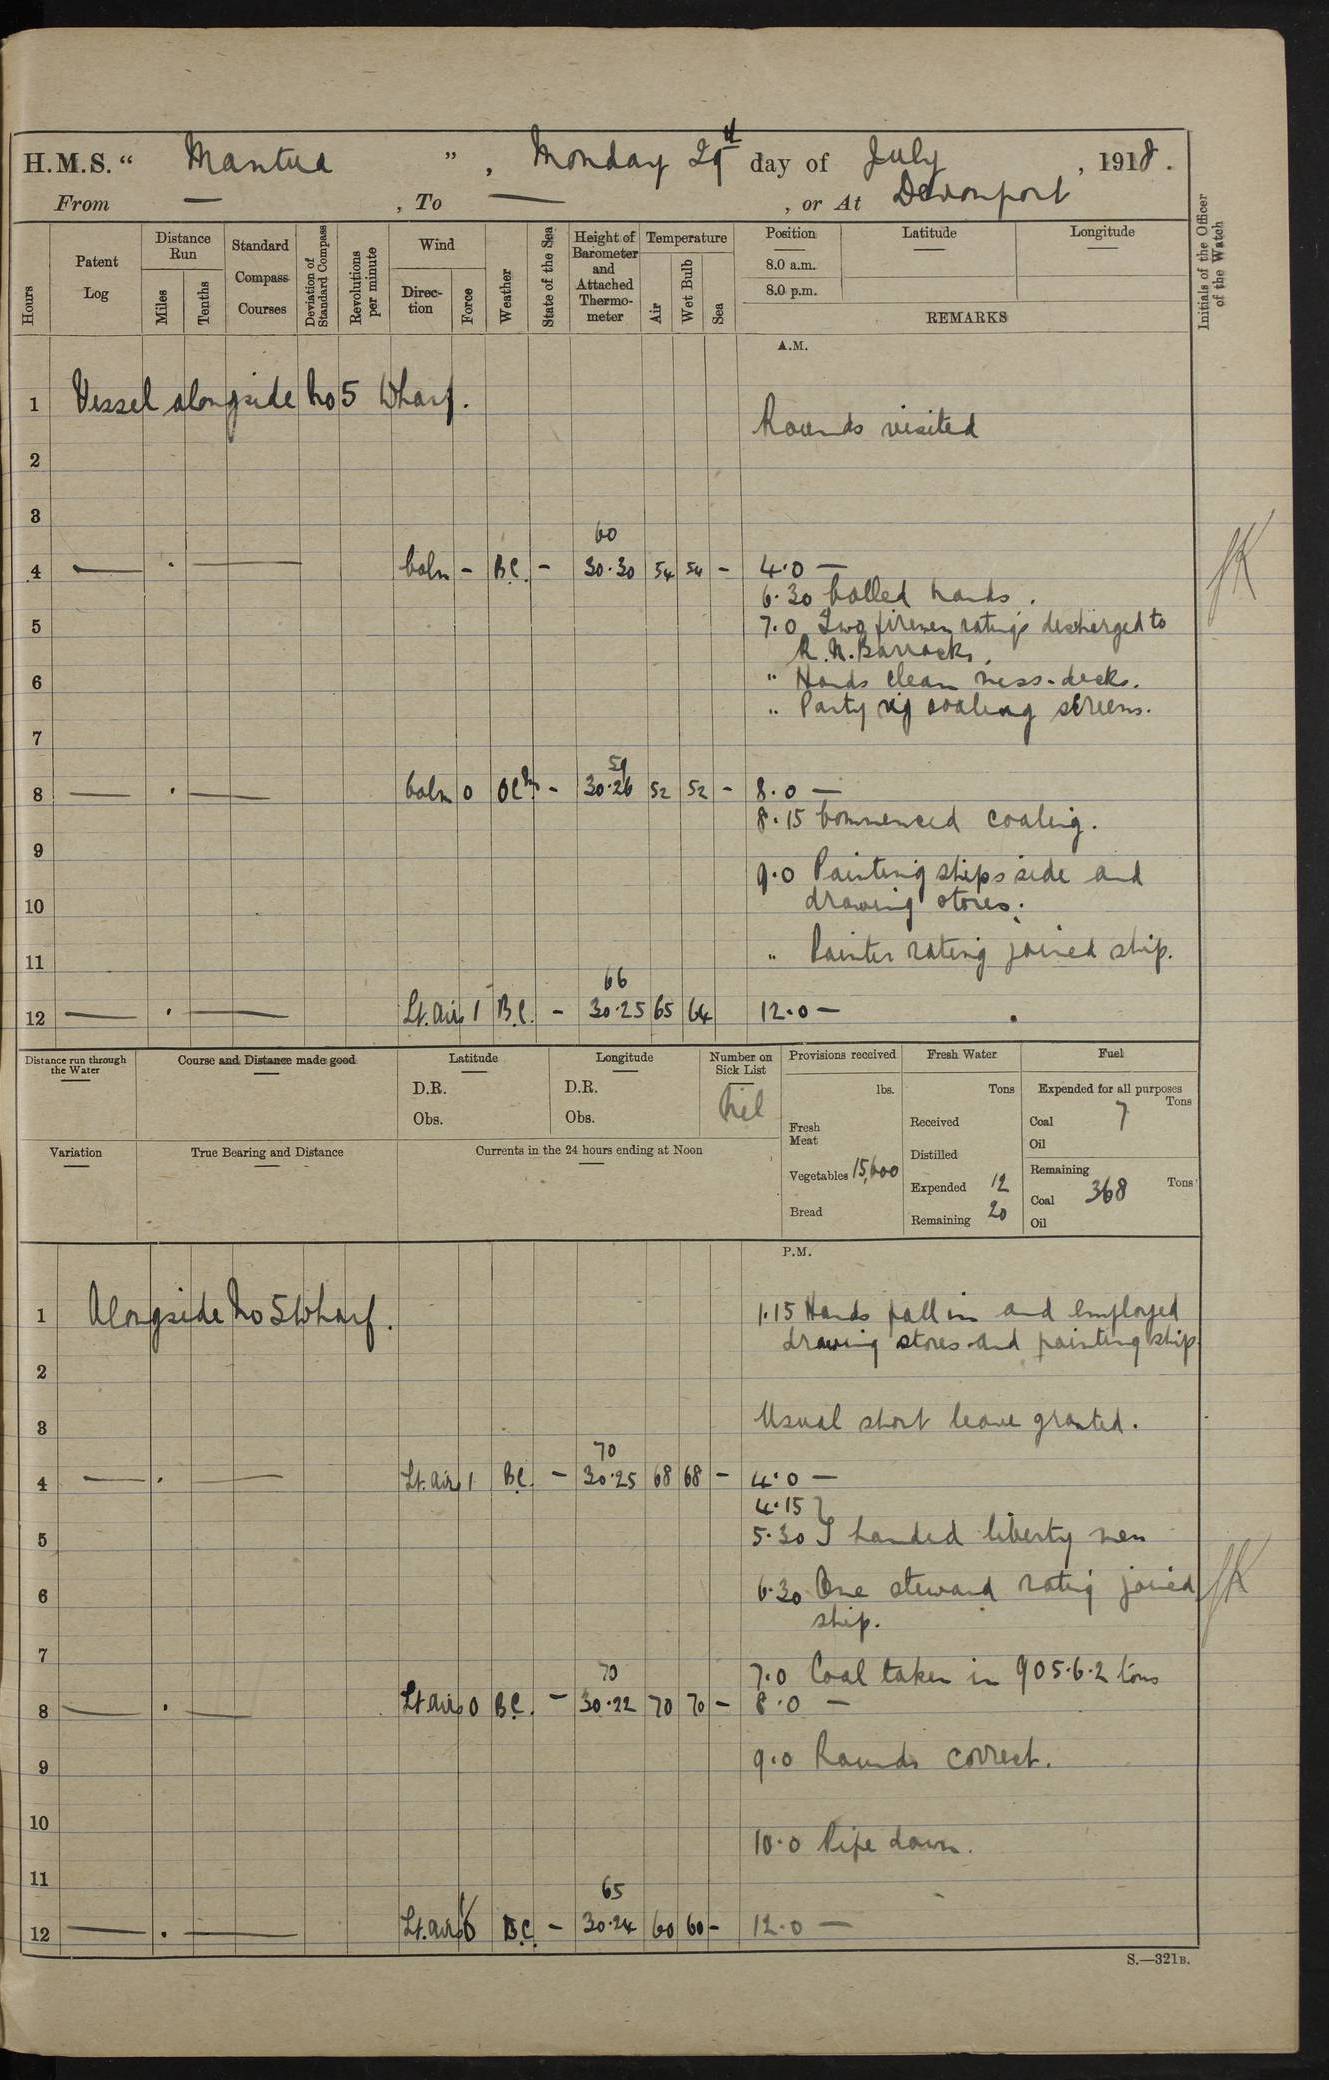 H.M.S. "Mantua", Monday 29th day of July, 1918.
From — , To — , or At Devonport
Hours
Patent Log
Distance Run
Miles
Tenths
Standard Compass Courses
Deviation of Standard Compass
Revolutions per minute
Wind
Direction
Force
Weather
State of the Sea
Height of Barometer and Attached Thermometer
Temperature
Air
Wet Bulb
Sea
Position
8.0 a.m.
8.0 p.m.
Latitude
Longitude
REMARKS
Initials of the Officer of the Watch
A.M.
1 Vessel alongside No 5 Wharf.
Rounds visited
2
3
60
4 — . — Calm - B.C. - 30.30 54 54 - 4.0 —
6.30 Called hands.
5 7.0 Two firemen ratings discharged to
R.N. Barracks.
6 " Hands clean mess-decks.
" Party rig coaling screens.
7
59
8 — . — Calm 0 OCm - 30.26 52 52 - 8.0 —
8.15 Commenced coaling.
9
9.0 Painting ships side and
10 drawing stores.
" Painter rating joined ship.
11
66
12 — . — Lt. airs 1 B.C. - 30.25 65 64 12.0 —
Distance run through the Water
Course and Distance made good
Latitude
D.R.
Obs.
Longitude
D.R.
Obs.
Number on Sick List
Nil
Provisions received
lbs.
Fresh Meat
Vegetables 15,600
Bread
Fresh Water
Tons
Received
Distilled
Expended 12
Remaining 20
Fuel
Expended for all purposes
Tons
Coal 7
Oil
Remaining
Tons
Coal 368
Oil
Variation
True Bearing and Distance
Currents in the 24 hours ending at Noon
P.M.
1 Alongside No 5 Wharf. 1.15 Hands fall in and employed
drawing stores and painting ship.
2
3 Usual short leave granted.
70
4 — . — Lt. airs 1 B.C. - 30.25 68 68 - 4.0 —
4.15 }
5 5.30 } Landed liberty men
6 6.30 One steward rating joined
ship.
7
70 7.0 Coal taken in 905.6.2 tons
8 — . — Lt airs 0 B.C. - 30.22 70 70 - 8.0 —
9 9.0 Rounds correct.
10
10.0 Pipe down.
11
65
12 — . — Lt. airs B.C. - 30.24 60 60 - 12.0 —
S.—321B.